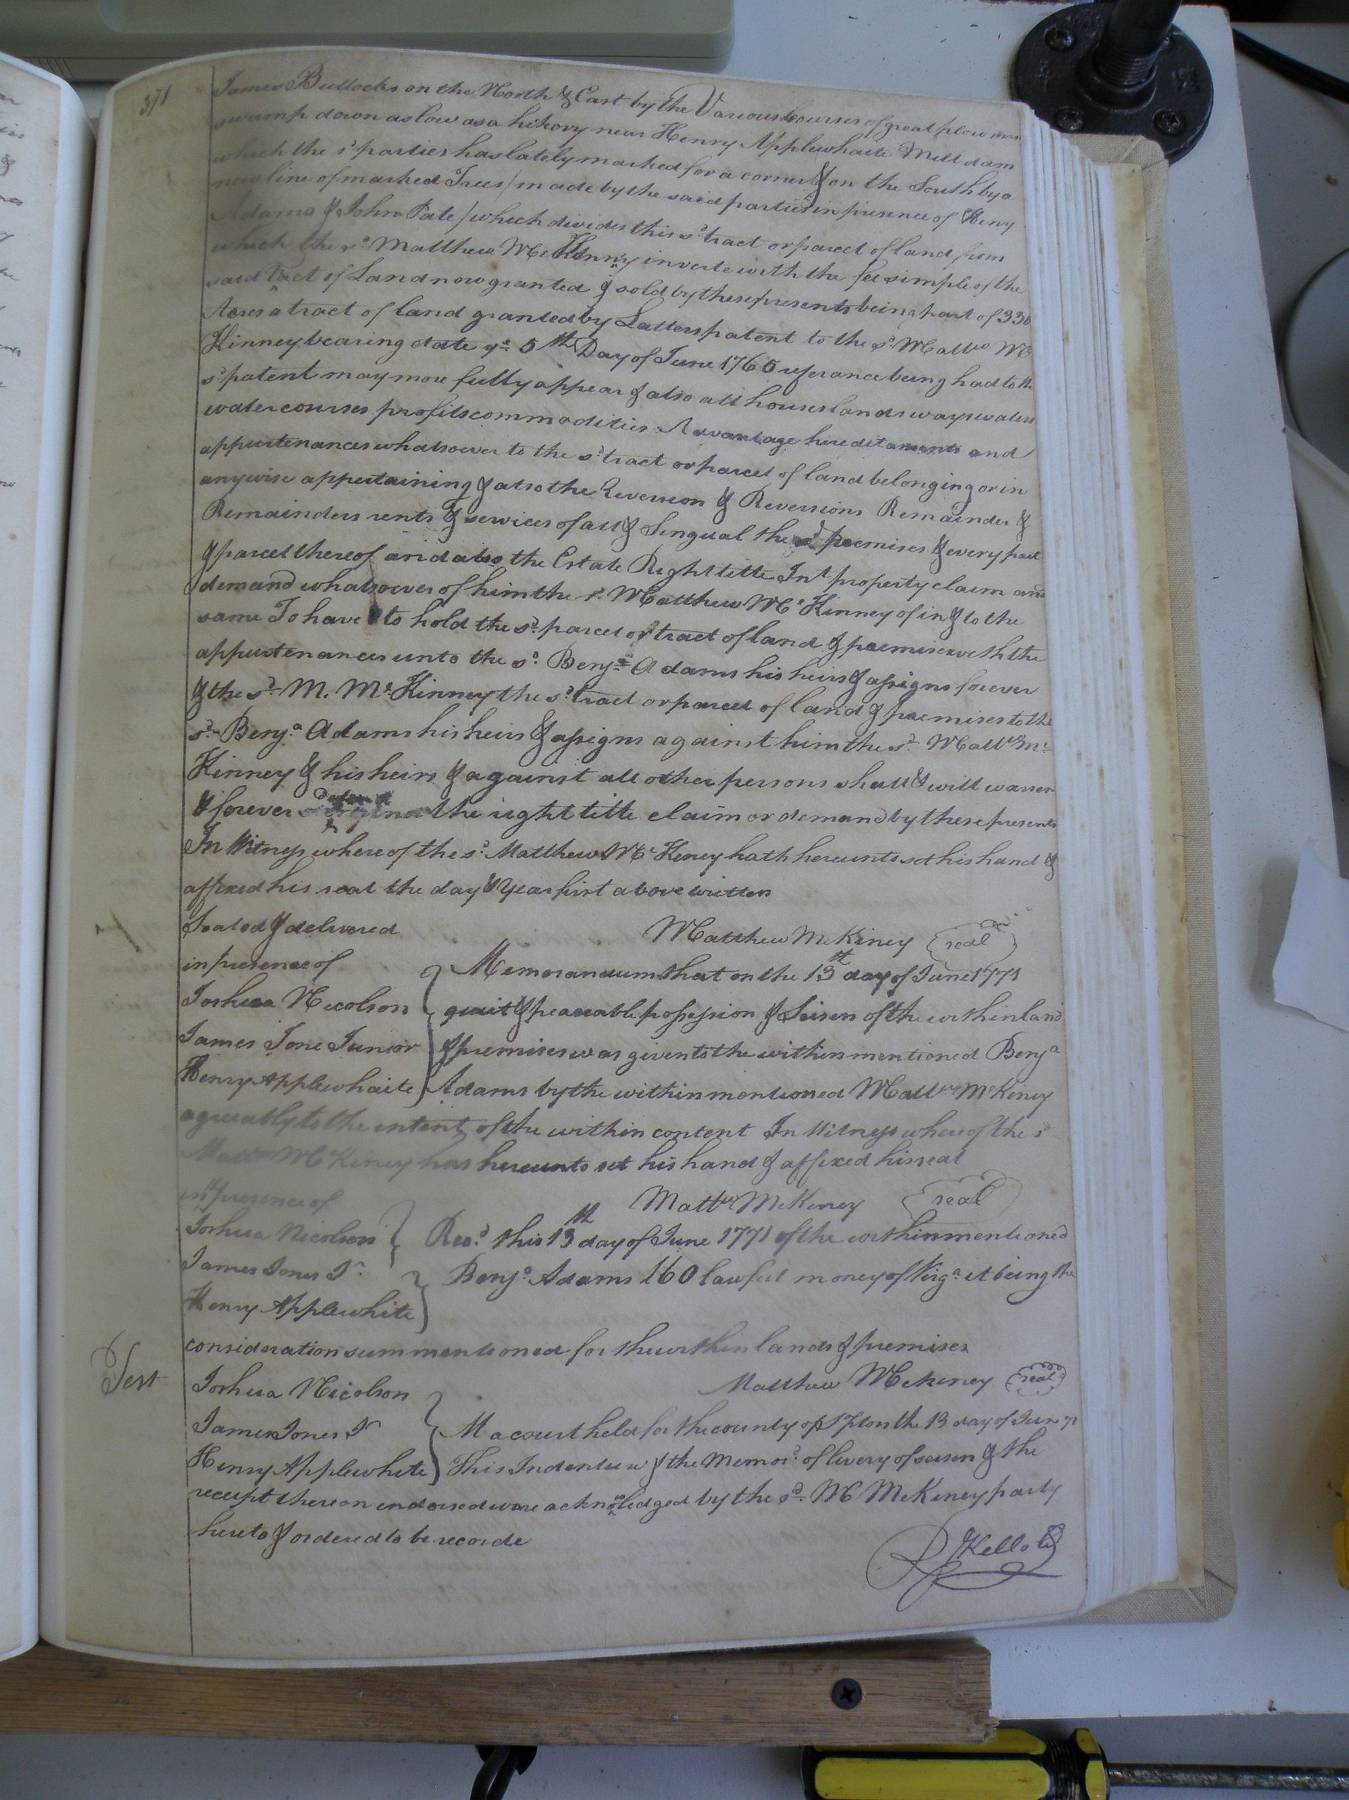 371
James Bullocks on the North & East by the Various Courses of great plow man
swamp down as low as a hikory near Henry Applewhaite Mill dam
which the sd parties has lately marked for a corner & on the South by a
new line of marked Trees / made by the said parties in presence of Heny
Adams & John Pate / which divides this sd tract or parcel of land from
which the sd Matthew McKinny investe with the fee simple of the
said Tact of Land now granted & sold by these presents being part of 330
Acres a tract of land granted by Letters patent to the sd Mattw Mc
Kinney bearing date ye 5th Day of June 1765 referance being had to the
sd patent may more fully appear & also all houses lands ways waters
water courses profits commodities Advantage hereditaments and
appurtenances whatsoever to the sd tract or parcel of land belonging or in
anywise appertaining & also the Reversion & Reversions Remainder &
Remainders rents & services of all & Singual the sd premises & every part
& parcel thereof and also the Estate Right title Int property claim and
demand whatsoever of him the sd Matthew Mc Kinney of in & to the
same To have & to hold the sd parcel or tract of land & premises with the
appurtenances unto the sd Benja Adams his heirs & assigns forever
& the sd M. Mc Kinney the sd tract or parcel of land & premises to the
sd Benja Adams his heirs & assigns against him the sd Mattw Mc
Kinney & his heirs & against all other persons shall & will warren
& forever the right title claim or demand by these presents
In Witness whereof the sd Matthew Mc Keney hath hereunto set his hand &
affixed his seal the day & Year first above written
Sealed & delivered
Matthew McKiney seal
in presence of
Memorandum that on the 13th day of June 1771
Joshua Nicolson
quait & peaceable possession & Seisen of the within land
James Jone Junior
& premises was given to the within mentioned Benja
Henry Applewhaite
Adams by the within mentioned Mattw McKiney
agreeably to the intent of the within content In Witness whereof the sd
Mattw McKiney has hereunto set his hand & affixed his seal
in presence of
Mattw McKeney seal
Joshua Nicolson
Recd this 13th day of June 1771 of the within mentioned
James Jones Jr
Benja Adams 160 lawful money of Virga it being the
Henry Applewhite
consideration sum mentioned for the within lands & premises
Test
Joshua Nicolson
Matthew Mckeney seal
James Jones Jr
At a court held for the county of on the 13 day of June 71
Henry Applewhite
This Indenture & the Memor of livery of seisen & the
receipt thereon endorsed were acknoledged by the sd M McKeney party
hereto & ordered to be recorde
R Kello